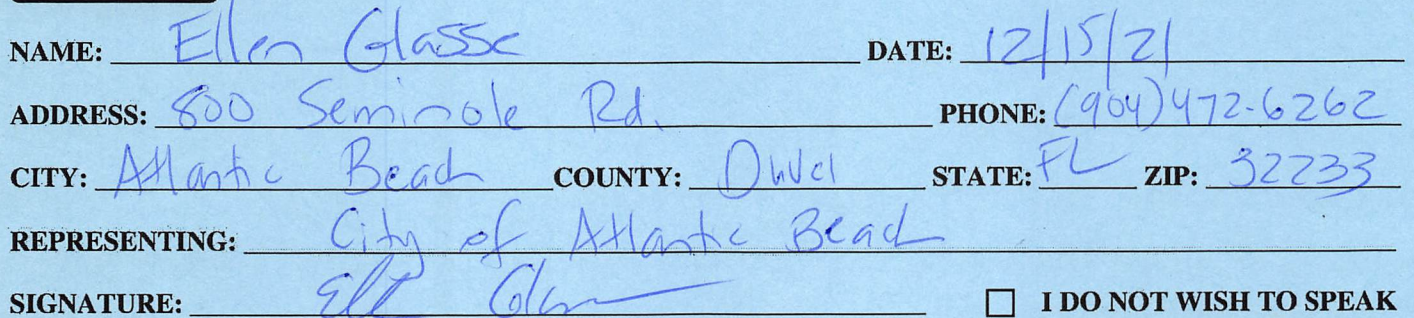 NAME: Ellen Glasse DATE: 12/15/21
ADDRESS: 800 Seminole Rd. PHONE: (904) 472-6262
CITY: Atlantic Beach COUNTY: Duval STATE: FL ZIP: 32233
REPRESENTING: City of Atlantic Beach
SIGNATURE: ☐ I DO NOT WISH TO SPEAK